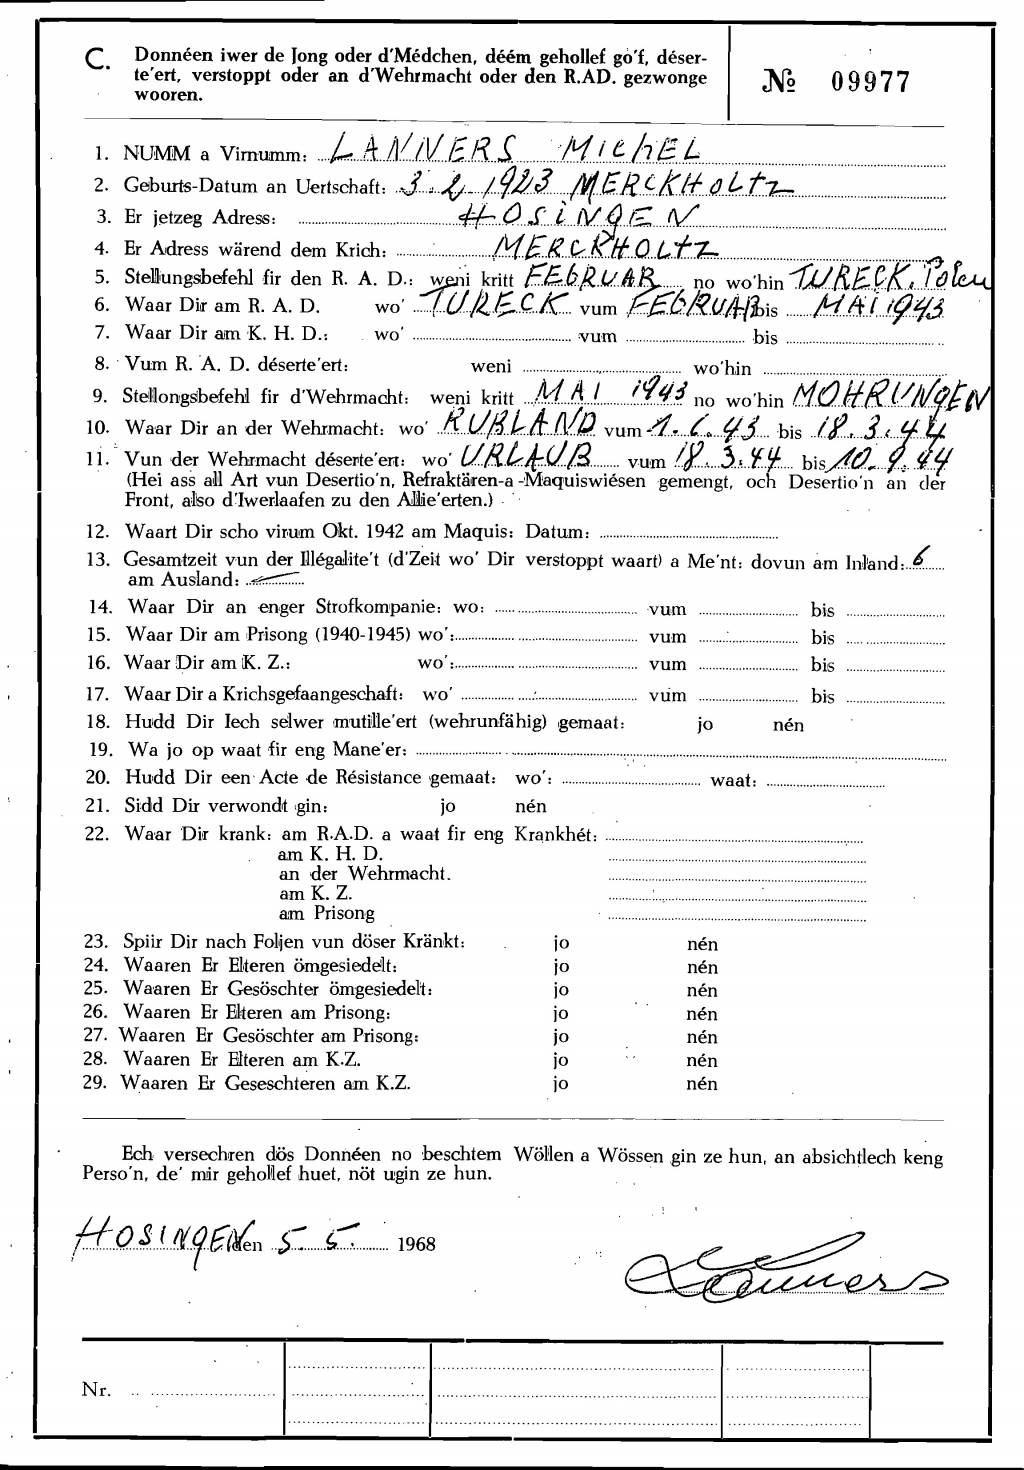 C. Donnéen iwer de Jong oder d'Médchen, déém gehollef go'f, déser-
te'ert, verstoppt oder an d'Wehrmacht oder den R.AD. gezwonge
wooren.
№ 09977
1. NUMM a Virnumm: LANNERS MichEL
2. Geburts-Datum an Uertschaft: 3.2.1923 MERCKHOLTZ
3. Er jetzeg Adress: HOSINGEN
4. Er Adress wärend dem Krich: MERCKHOLTZ
5. Stellungsbefehl fir den R. A. D.: weni kritt FEBRUAR no wo'hin TURECK. Polen
6. Waar Dir am R. A. D. wo' TURECK vum FEBRUAR bis MAI 1943
7. Waar Dir am K. H. D.: wo' vum bis
8. Vum R. A. D. déserte'ert: weni wo'hin
9. Stellongsbefehl fir d'Wehrmacht: weni kritt MAI 1943 no wo'hin MOHRUNGEN
10. Waar Dir an der Wehrmacht: wo' RUßLAND vum 1.6.43 bis 18.3.44
11. Vun der Wehrmacht déserte'ert: wo' URLAUB vum 18.3.44 bis 10.9.44
(Hei ass all Art vun Desertio'n, Refraktären-a -Maquiswiésen gemengt, och Desertio'n an der
Front, also d'Iwerlaafen zu den Allie'erten.)
12. Waart Dir scho virum Okt. 1942 am Maquis: Datum:
13. Gesamtzeit vun der Illégalite't (d'Zeit wo' Dir verstoppt waart) a Me'nt: dovun am Inland: 6
am Ausland:
14. Waar Dir an enger Strofkompanie: wo: vum bis
15. Waar Dir am Prisong (1940-1945) wo': vum bis
16. Waar Dir am K. Z.: wo': vum bis
17. Waar Dir a Krichsgefaangeschaft: wo' vum bis
18. Hudd Dir Iech selwer mutille'ert (wehrunfähig) gemaat: jo nén
19. Wa jo op waat fir eng Mane'er:
20. Hudd Dir een Acte de Résistance gemaat: wo': waat:
21. Sidd Dir verwondt gin: jo nén
22. Waar Dir krank: am R.A.D. a waat fir eng Krankhét:
am K. H. D.
an der Wehrmacht.
am K. Z.
am Prisong
23. Spiir Dir nach Foljen vun döser Kränkt: jo nén
24. Waaren Er Elteren ömgesiedelt: jo nén
25. Waaren Er Gesöschter ömgesiedelt: jo nén
26. Waaren Er Elteren am Prisong: jo nén
27. Waaren Er Gesöschter am Prisong: jo nén
28. Waaren Er Elteren am K.Z. jo nén
29. Waaren Er Geseschteren am K.Z. jo nén
Ech versechren dös Donnéen no beschtem Wöllen a Wössen gin ze hun, an absichtlech keng
Perso'n, de' mir gehollef huet, nöt ugin ze hun.
HOSINGEN den 5. 5. 1968
Lanners
Nr.